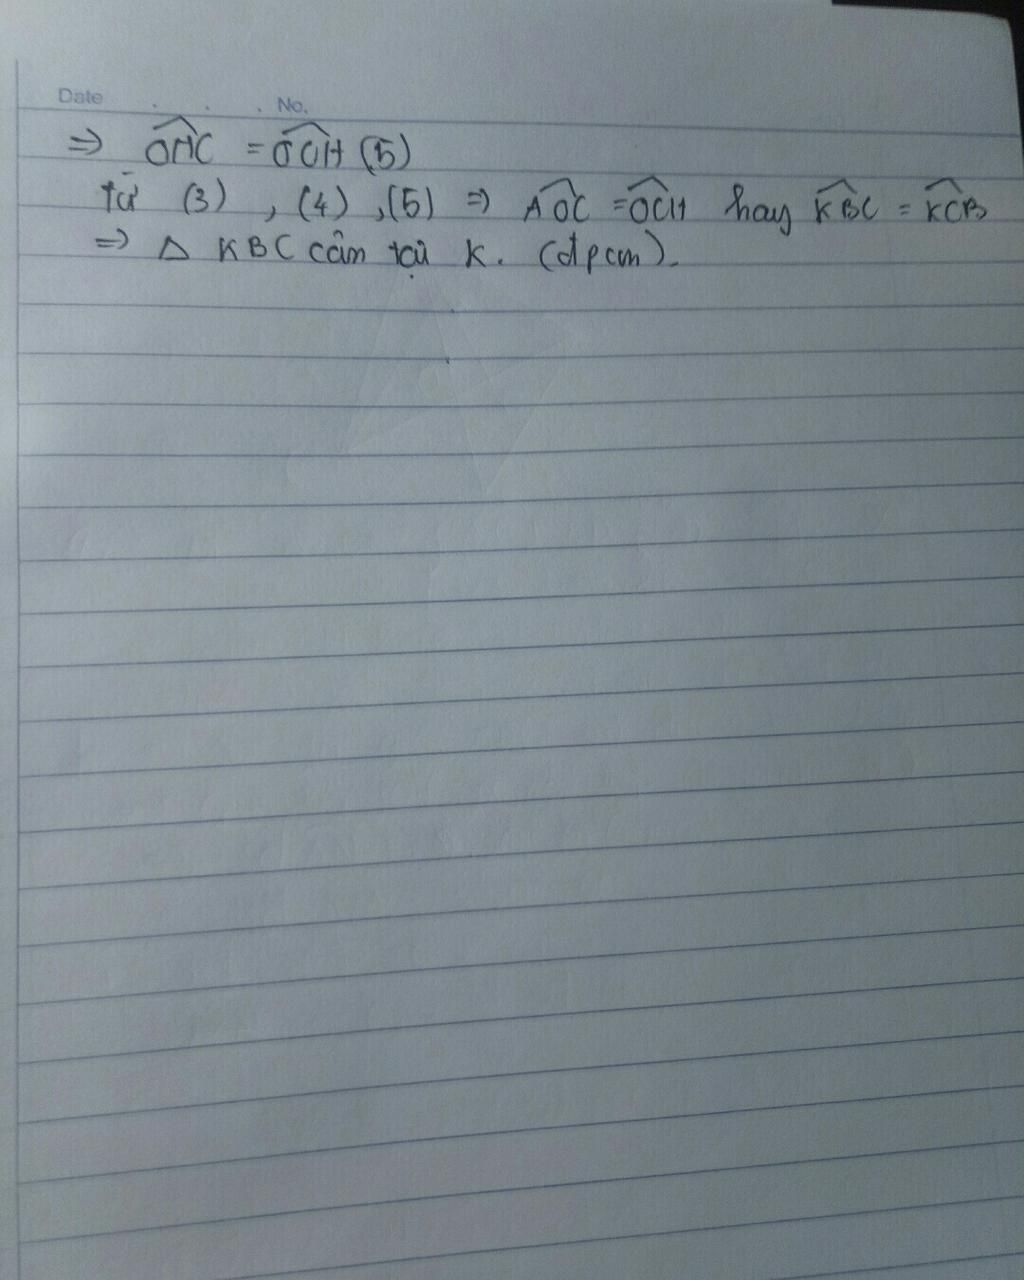 Date . . . No.
⇒ \widehat{OHC} = \widehat{OCH} (5)
Từ (3) , (4) , (5) ⇒ \widehat{AOC} = \widehat{OCH} hay \widehat{KBC} = \widehat{KCB}
⇒ Δ KBC cân tại K. (đpcm).